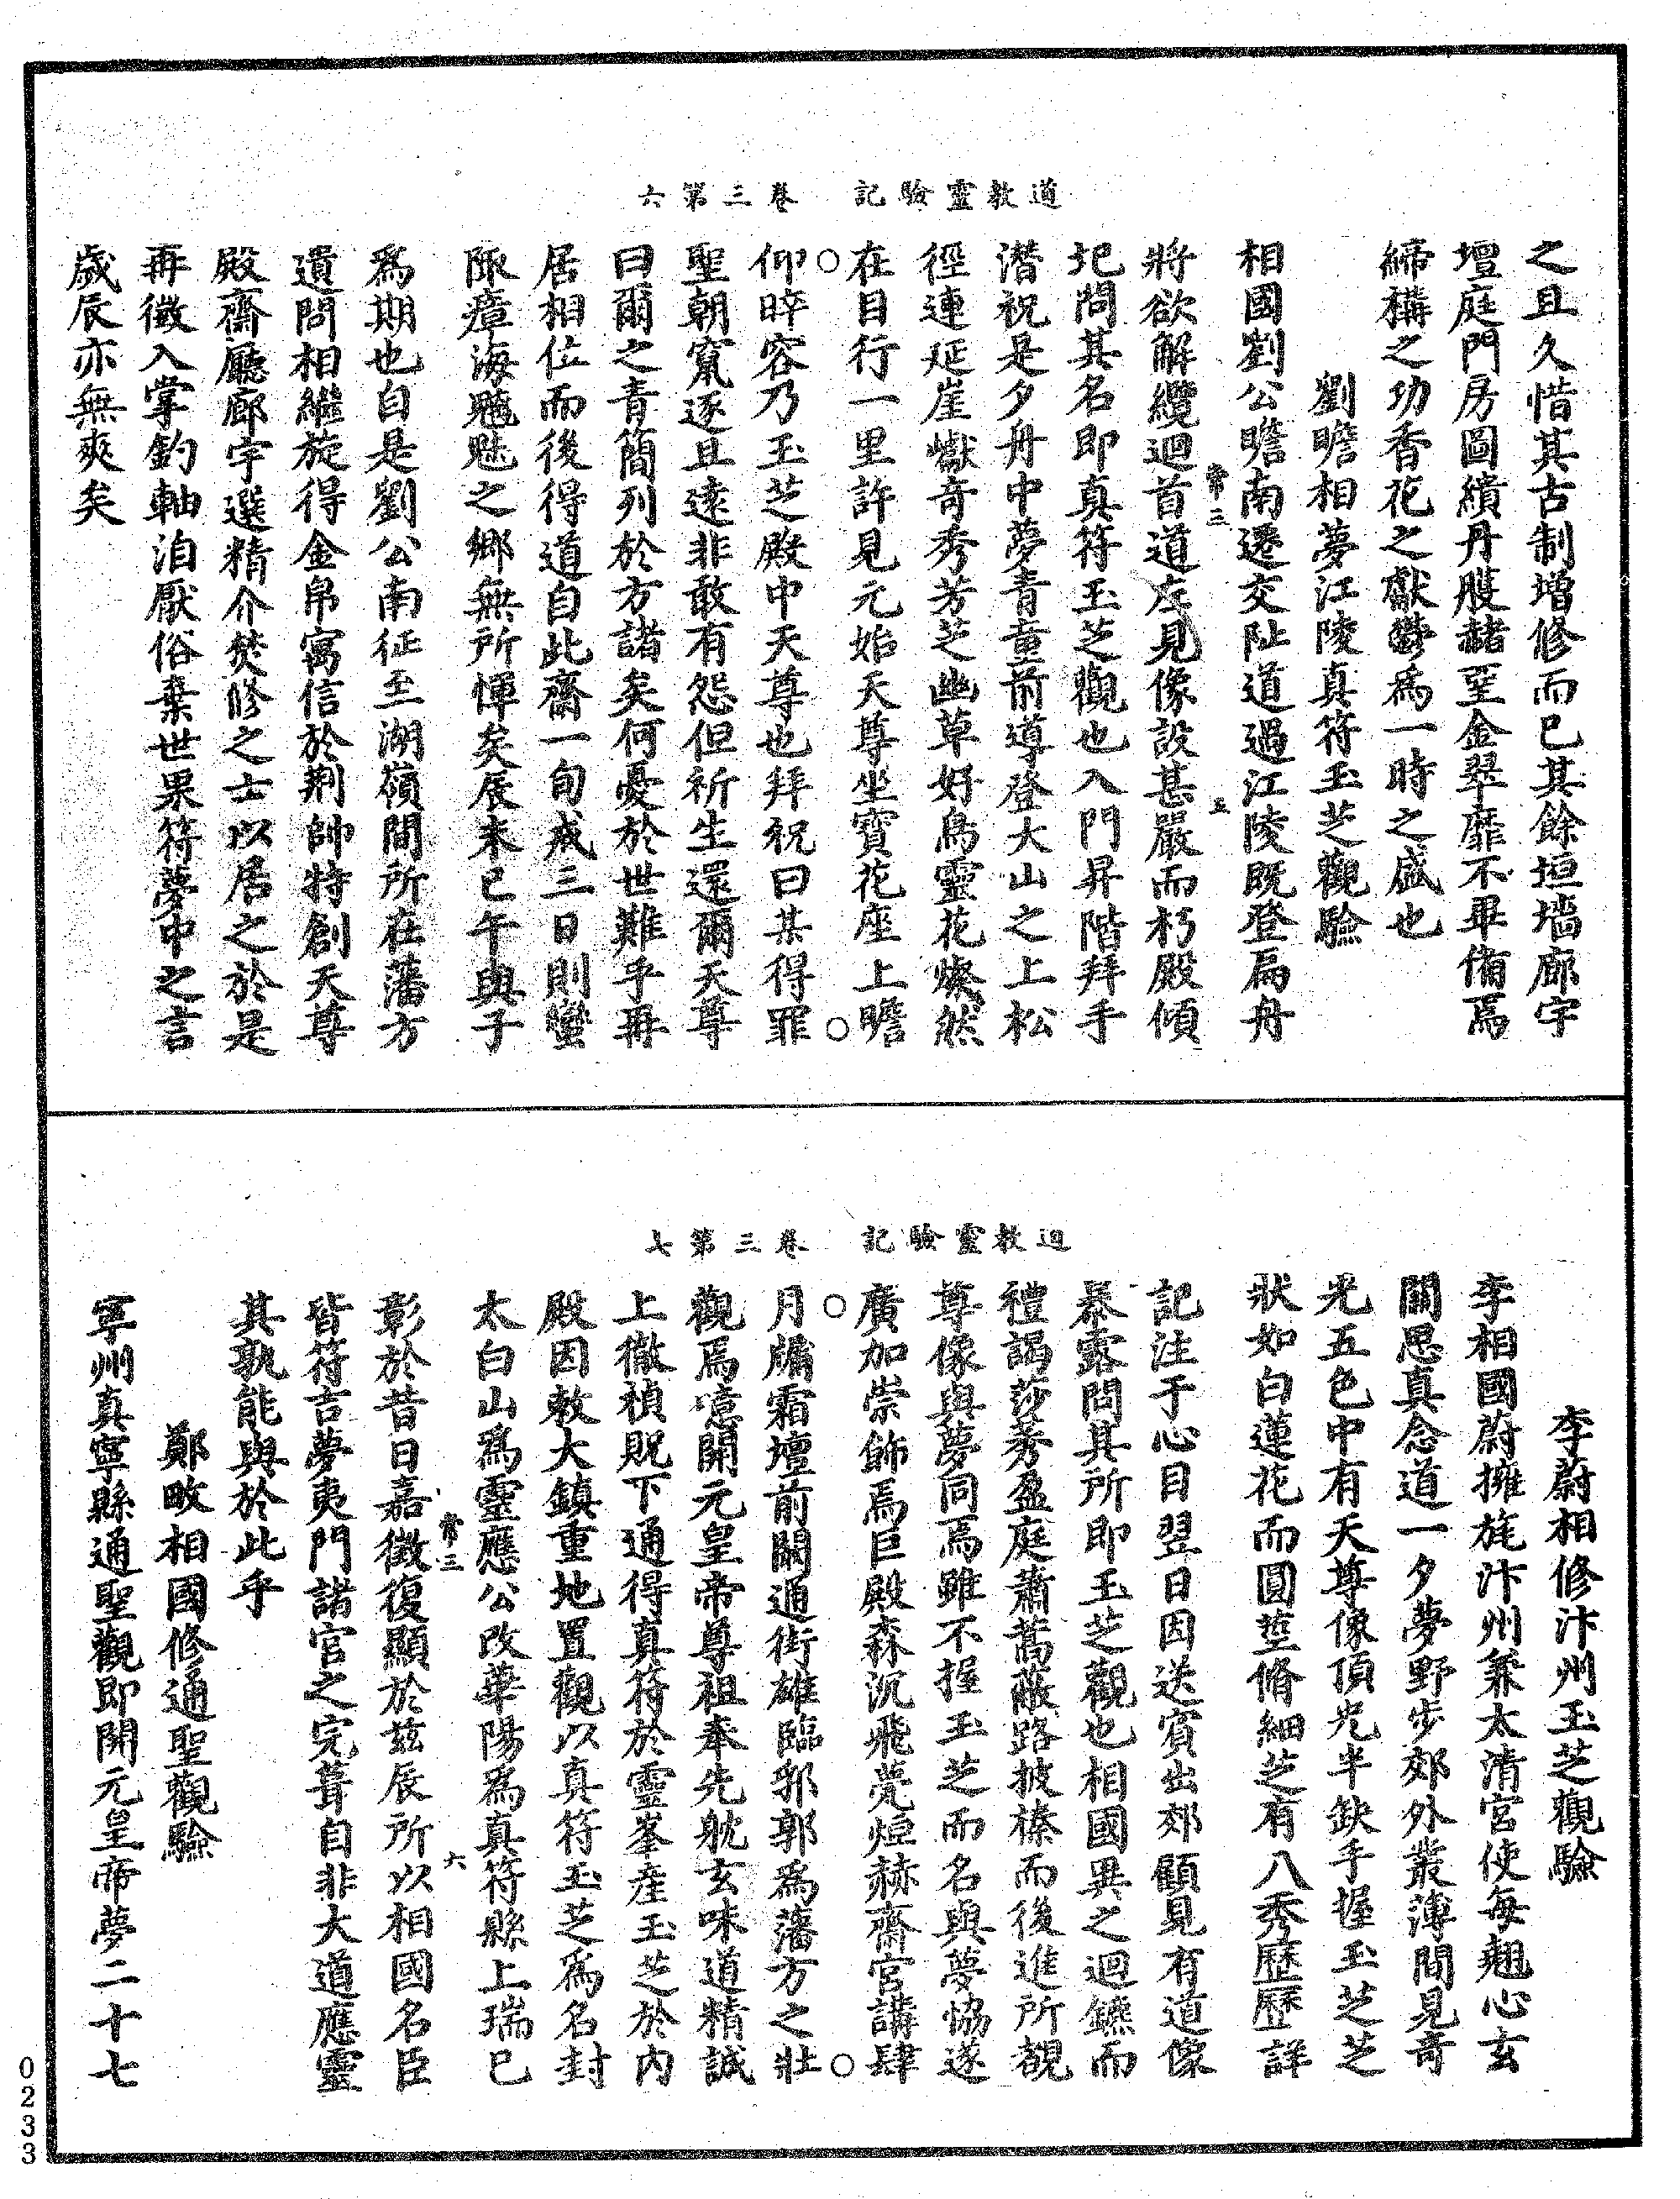 道教靈驗記　卷三第六
之且久惜其古制增修而已其餘垣墻廊宇
壇庭門房圖繢丹雘赭堊金翠靡不畢備焉
締構之功香花之獻鬱爲一時之盛也
劉瞻相夢江陵真符玉芝觀驗
相國劉公瞻南遷交阯道過江陵既登扁舟
常三
五
將欲解纜迴首道左見像設甚嚴而朽殿傾
圮問其名即真符玉芝觀也入門昇階拜手
潛祝是夕舟中夢青童前導登大山之上松
徑連延崖巘奇秀芳芝幽草好鳥靈花燦然
在目行一里許見元始天尊坐寶花座上瞻
仰晬容乃玉芝殿中天尊也拜祝曰某得罪
聖朝竄逐且遠非敢有怨但祈生還爾天尊
曰爾之青簡列於方諸矣何憂於世難乎再
居相位而後得道自此齋一旬戒三日則蠻
陬瘴海魑魅之鄉無所憚矣辰未巳午與子
爲期也自是劉公南征至湖嶺間所在藩方
遺問相繼旋得金帛寓信於荆帥特創天尊
殿齋廳廊宇選精介焚修之士以居之於是
再徵入掌鈞軸洎厭俗棄世果符夢中之言
歲辰亦無爽矣
道教靈驗記　卷三第七
李蔚相修汴州玉芝觀驗
李相國蔚擁旄汴州兼太清宮使每翹心玄
關思真念道一夕夢野步郊外叢薄間見奇
光五色中有天尊像頂光半缺手握玉芝芝
狀如白蓮花而圓莖脩細芝有八秀歷歷詳
記注于心目翌日因送賓出郊顧見有道像
暴露問其所即玉芝觀也相國異之迴鑣而
禮謁莎莠盈庭蕭蒿蔽路披榛而後進所覩
尊像與夢同焉雖不握玉芝而名與夢協遂
廣加崇飾焉巨殿森沉飛甍烜赫齋宮講肆
月牖霜壇前闢通街雄臨郛郭爲藩方之壯
觀焉噫開元皇帝尊祖奉先躭玄味道精誠
上徹禎貺下通得真符於靈峯產玉芝於內
殿因敕大鎮重地置觀以真符玉芝爲名封
太白山爲靈應公改華陽爲真符縣上瑞已
常三
六
彰於昔日嘉徵復顯於茲辰所以相國名臣
皆符吉夢夷門諸官之完葺自非大道應靈
其孰能與於此乎
鄭畋相國修通聖觀驗
寧州真寧縣通聖觀即開元皇帝夢二十七
0233